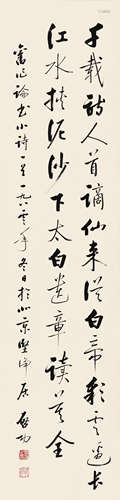 千载诗人首谪仙来从白帝彩云边长
江水挟泥沙下太白遗章读莫全
旧作论书小诗一首一九八六年冬日于北京坚净居启功